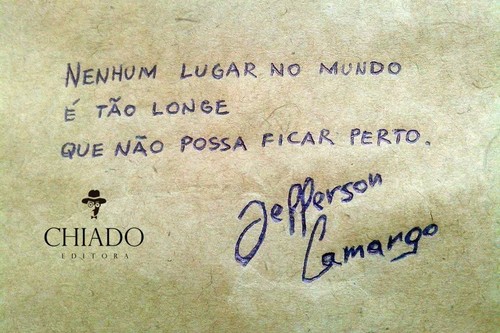 NENHUM LUGAR NO MUNDO
É TÃO LONGE
QUE NÃO POSSA FICAR PERTO.
Jefferson
Camargo
CHIADO
EDITORA